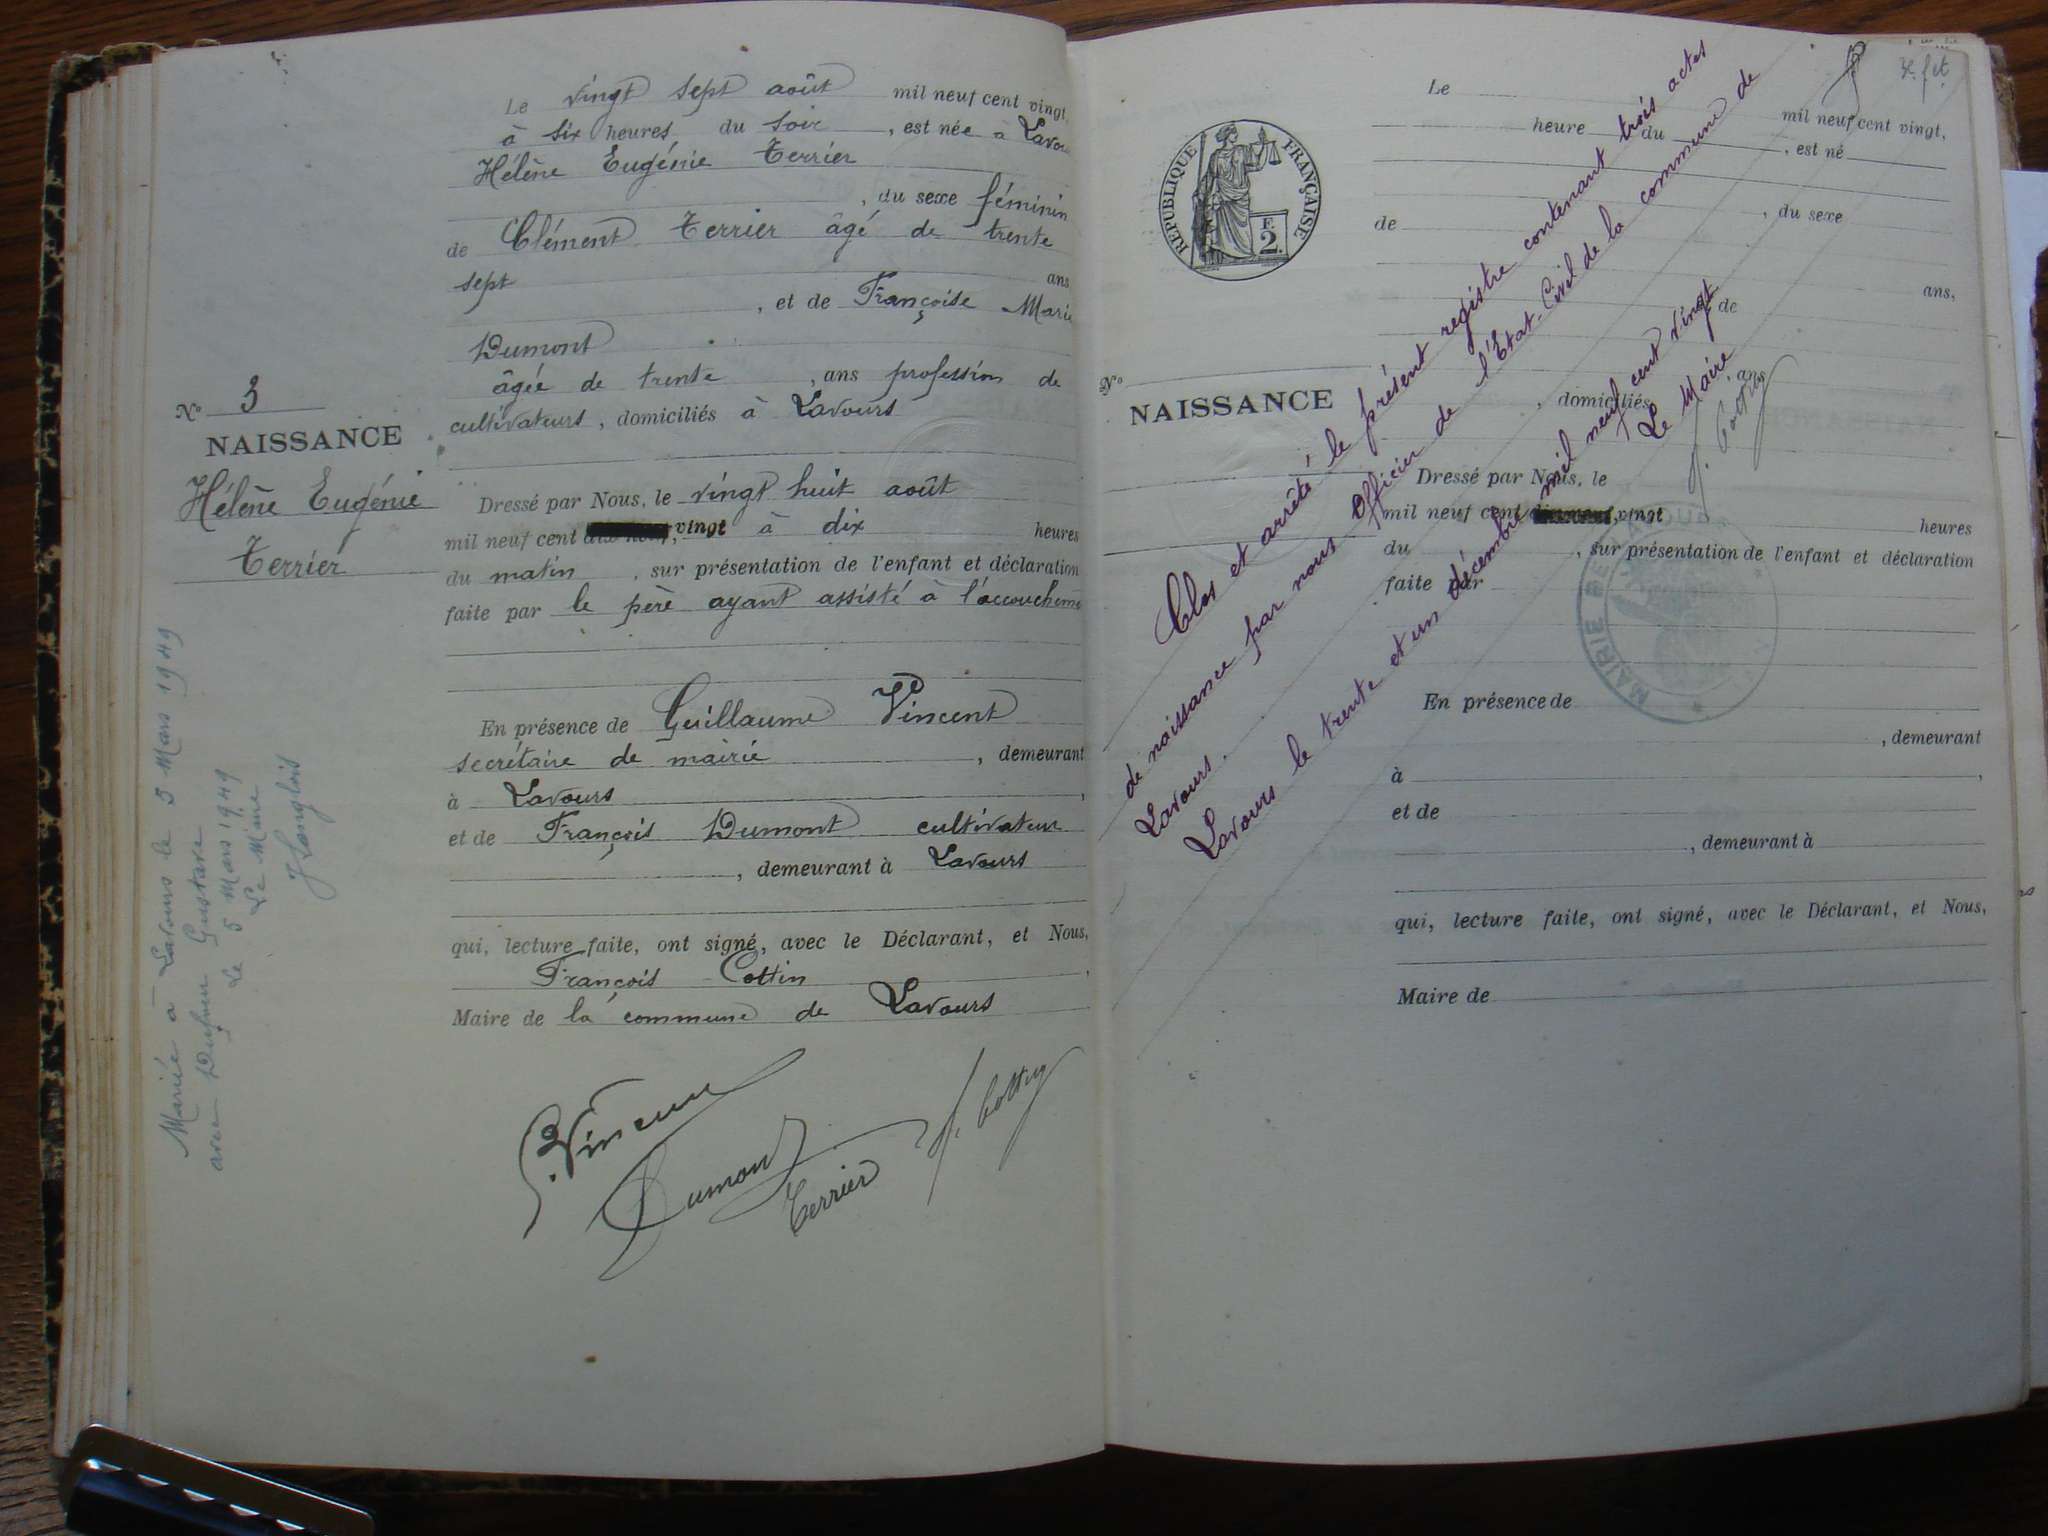 Le vingt sept août mil neuf cent vingt,
à six heures du soir, est née à Lavou
Hélène Eugénie Terrier
, du sexe féminin
de Clément Terrier âgé de trente
sept ans
, et de Françoise Marie
Dumont
âgée de trente, ans profession de
cultivateurs, domiciliés à Lavours
N° 3
NAISSANCE
Hélène Eugénie
Terrier
Dressé par Nous, le vingt huit août
mil neuf cent vingt à dix heures
du matin, sur présentation de l'enfant et déclaration
faite par le père ayant assisté à l'accoucheme
En présence de Guillaume Vincent
secrétaire de mairie, demeurant
à Lavours,
et de François Dumont cultivateur
, demeurant à Lavours
qui, lecture faite, ont signé, avec le Déclarant, et Nous,
François Cottin,
Maire de la commune de Lavours
G. Vincent
Dumont
Terrier
F. Cottin
Mariée à Lavours le 5 Mars 1949
avec Gustave
Le 5 Mars 1949
Le Maire
J Langlois
REPUBLIQUE FRANÇAISE
E
2
Le
mil neuf cent vingt,
heure du, est né
, du sexe
de
ans,
de
N°
NAISSANCE
ans
, domiciliés
Dressé par Nous, le
mil neuf cent vingt heures
du, sur présentation de l'enfant et déclaration
faite par
En présence de
, demeurant
à,
et de
, demeurant à
qui, lecture faite, ont signé, avec le Déclarant, et Nous,
Maire de
Clos et arrêté le présent registre contenant trois actes
de naissance par nous Officier de l'Etat-Civil de la commune de
Lavours.
Lavours le trente et un décembre mil neuf cent vingt
Le Maire
F. Cottin
MAIRIE DE